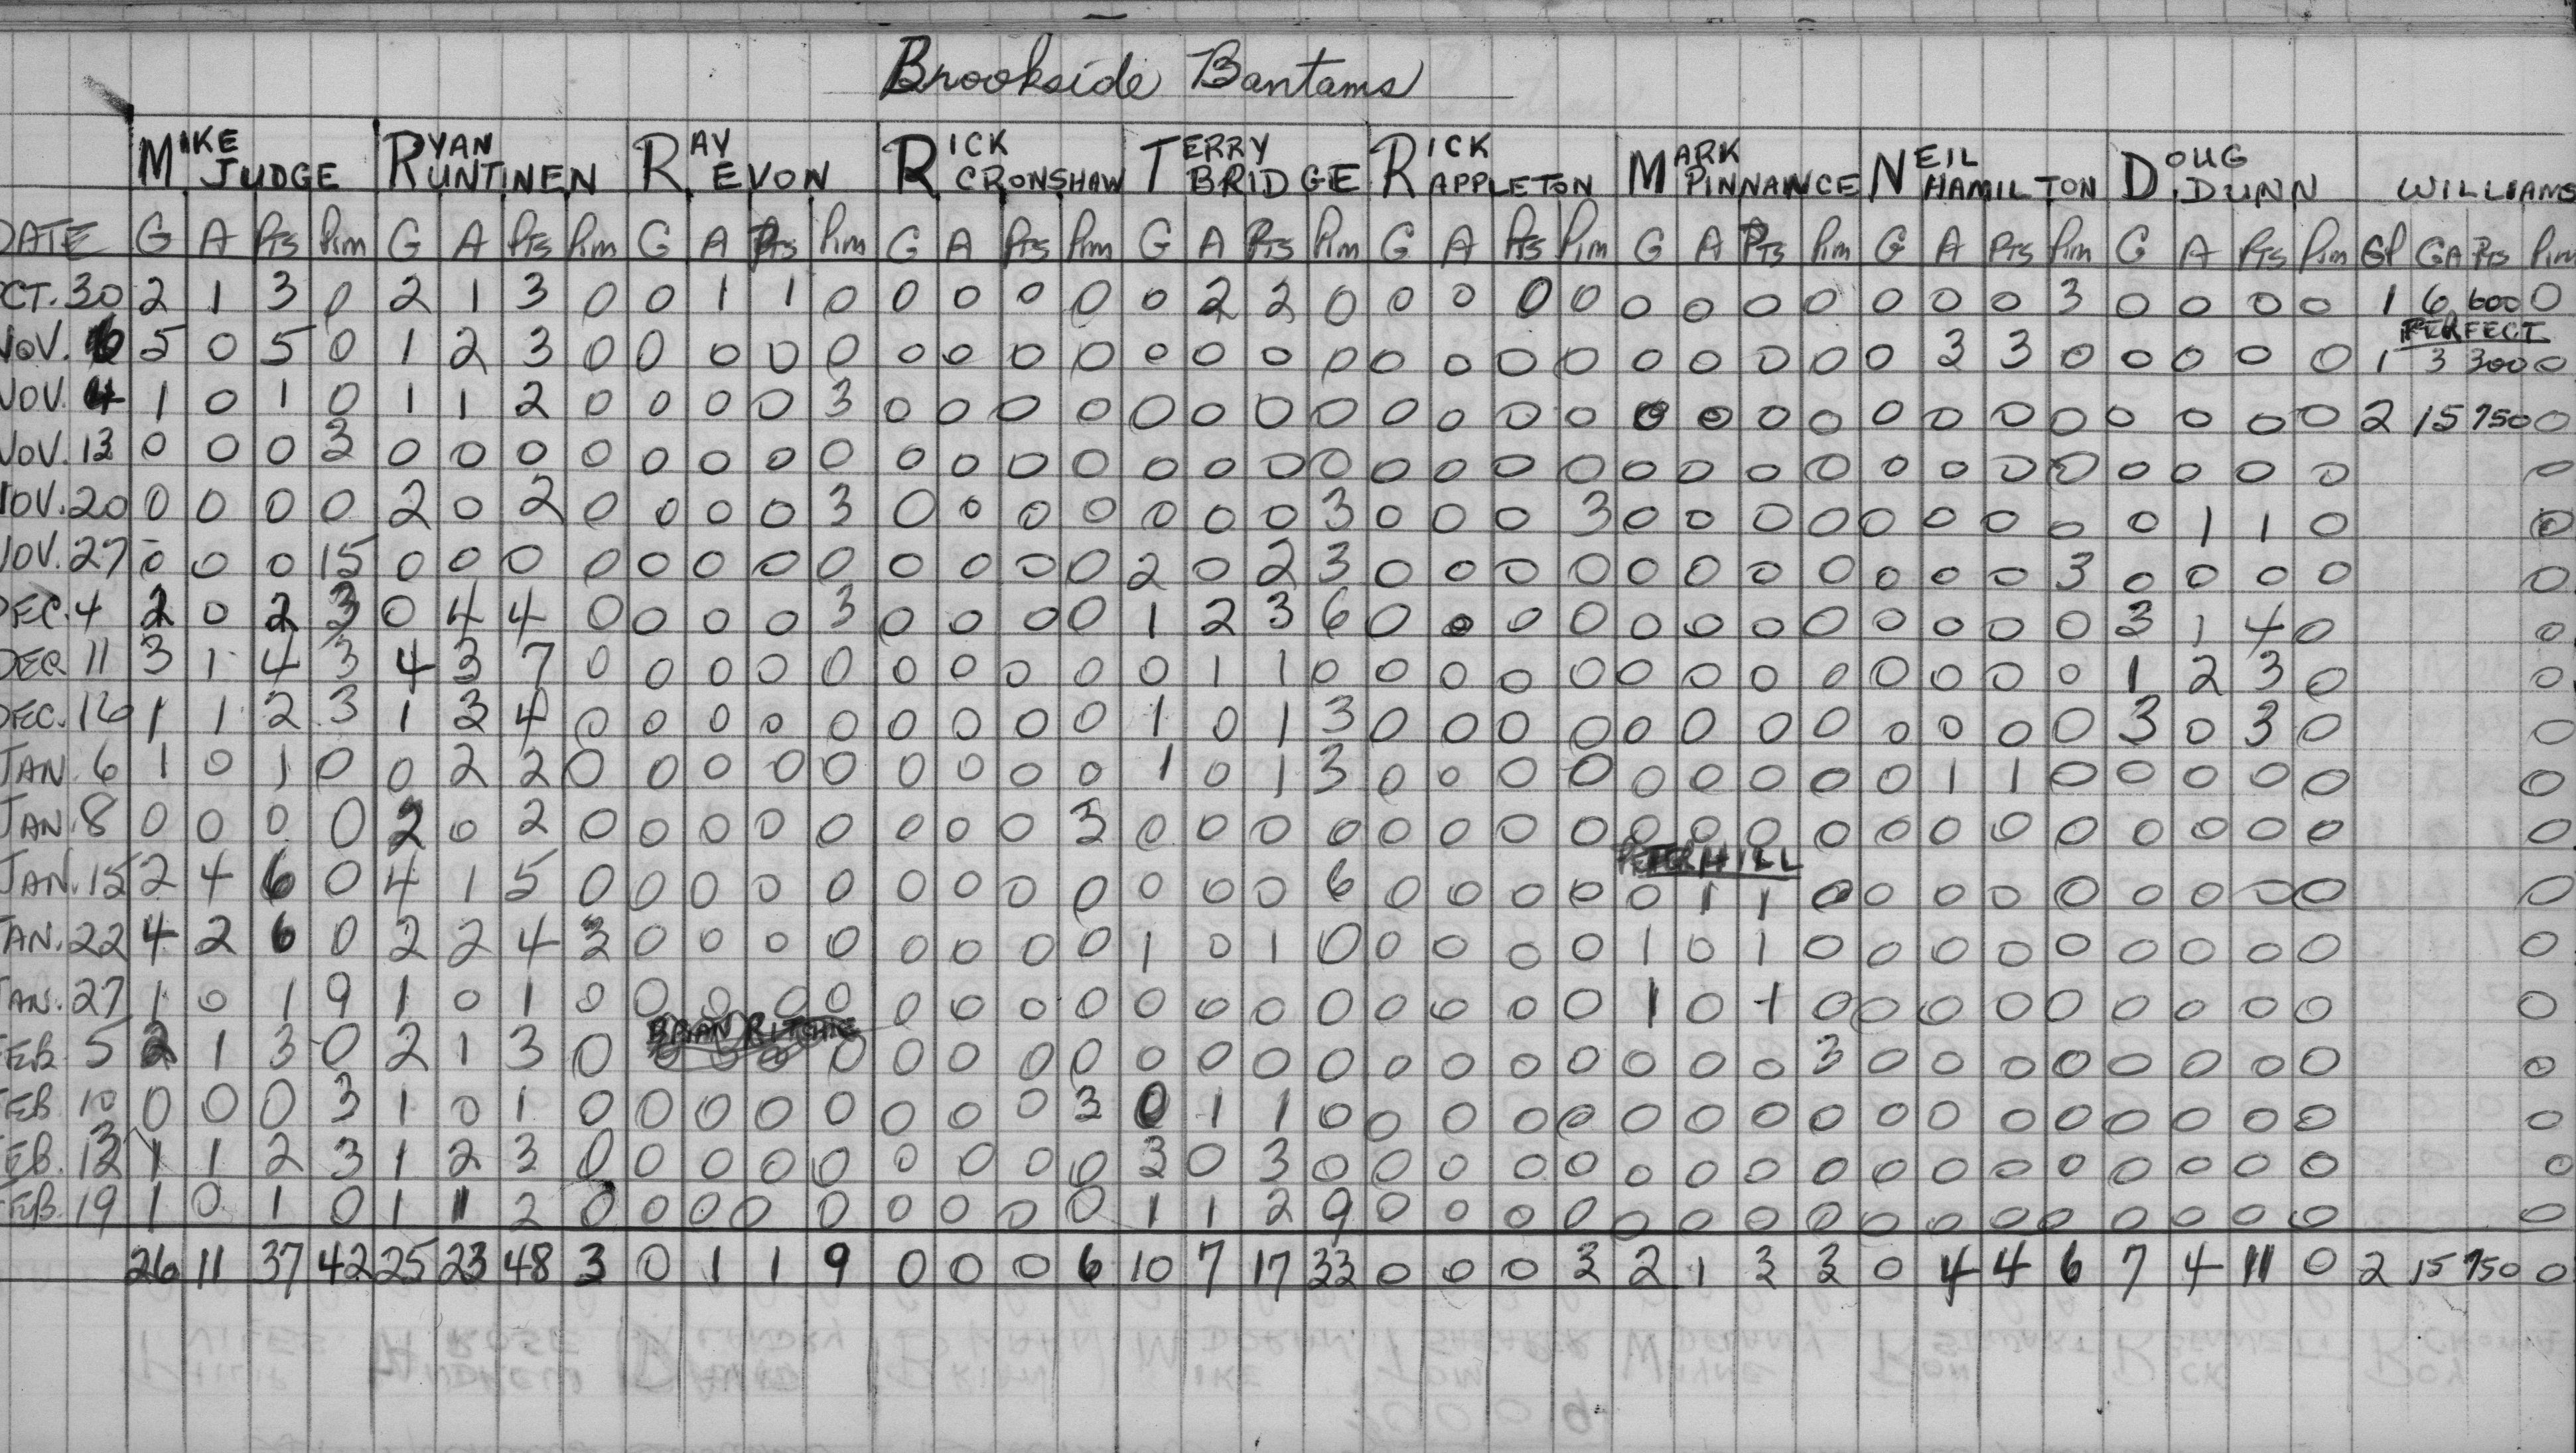 Brookside Bantams
MIKE JUDGE RYAN RUNTINEN RAY EVON RICK CRONSHAW TERRY BRIDGE RICK APPLETON MARK PINNANCE NEIL HAMILTON DOUG DUNN WILLIAMS
DATE G A Pts Pim G A Pts Pim G A Pts Pim G A Pts Pim G A Pts Pim G A Pts Pim G A Pts Pim G A Pts Pim G A Pts Pim GP GA Pts Pim
OCT. 30 2 1 3 0 2 1 3 0 0 1 1 0 0 0 0 0 0 2 2 0 0 0 0 0 0 0 0 0 0 0 0 3 0 0 0 0 1 6 600 0
PERFECT
NOV. 6 5 0 5 0 1 2 3 0 0 0 0 0 0 0 0 0 0 0 0 0 0 0 0 0 0 0 0 0 0 3 3 0 0 0 0 0 1 3 300 0
NOV. 4 1 0 1 0 1 1 2 0 0 0 0 3 0 0 0 0 0 0 0 0 0 0 0 0 0 0 0 0 0 0 0 0 0 0 0 0 2 15 750 0
NOV. 13 0 0 0 3 0 0 0 0 0 0 0 0 0 0 0 0 0 0 0 0 0 0 0 0 0 0 0 0 0 0 0 0 0 0 0 0 0
NOV. 20 0 0 0 0 2 0 2 0 0 0 0 3 0 0 0 0 0 0 0 3 0 0 0 3 0 0 0 0 0 0 0 0 0 1 1 0 0
NOV. 27 0 0 0 15 0 0 0 0 0 0 0 0 0 0 0 0 2 0 2 3 0 0 0 0 0 0 0 0 0 0 0 3 0 0 0 0 0
DEC. 4 2 0 2 3 0 4 4 0 0 0 0 3 0 0 0 0 1 2 3 6 0 0 0 0 0 0 0 0 0 0 0 0 3 1 4 0 0
DEC 11 3 1 4 3 4 3 7 0 0 0 0 0 0 0 0 0 0 1 1 0 0 0 0 0 0 0 0 0 0 0 0 0 1 2 3 0 0
DEC. 16 1 1 2 3 1 3 4 0 0 0 0 0 0 0 0 0 1 0 1 3 0 0 0 0 0 0 0 0 0 0 0 0 3 0 3 0 0
JAN 6 1 0 1 0 0 2 2 0 0 0 0 0 0 0 0 0 1 0 1 3 0 0 0 0 0 0 0 0 0 1 1 0 0 0 0 0 0
JAN. 8 0 0 0 0 2 0 2 0 0 0 0 0 0 0 0 3 0 0 0 0 0 0 0 0 0 0 0 0 0 0 0 0 0 0 0 0 0
PETER HILL
JAN. 15 2 4 6 0 4 1 5 0 0 0 0 0 0 0 0 0 0 0 0 6 0 0 0 0 0 1 1 0 0 0 0 0 0 0 0 0 0
JAN. 22 4 2 6 0 2 2 4 3 0 0 0 0 0 0 0 0 1 0 1 0 0 0 0 0 1 0 1 0 0 0 0 0 0 0 0 0 0
JAN. 27 1 0 1 9 1 0 1 0 0 0 0 0 0 0 0 0 0 0 0 0 0 0 0 0 1 0 1 0 0 0 0 0 0 0 0 0 0
BRIAN RITCHIE
FEB 5 2 1 3 0 2 1 3 0 0 0 0 0 0 0 0 0 0 0 0 0 0 0 0 0 0 0 0 3 0 0 0 0 0 0 0 0 0
FEB 10 0 0 0 3 1 0 1 0 0 0 0 0 0 0 0 3 0 1 1 0 0 0 0 0 0 0 0 0 0 0 0 0 0 0 0 0 0
FEB. 13 1 1 2 3 1 2 3 0 0 0 0 0 0 0 0 0 3 0 3 0 0 0 0 0 0 0 0 0 0 0 0 0 0 0 0 0 0
FEB. 19 1 0 1 0 1 1 2 0 0 0 0 0 0 0 0 0 1 1 2 9 0 0 0 0 0 0 0 0 0 0 0 0 0 0 0 0 0
26 11 37 42 25 23 48 3 0 1 1 9 0 0 0 6 10 7 17 33 0 0 0 3 2 1 3 3 0 4 4 6 7 4 11 0 2 15 750 0